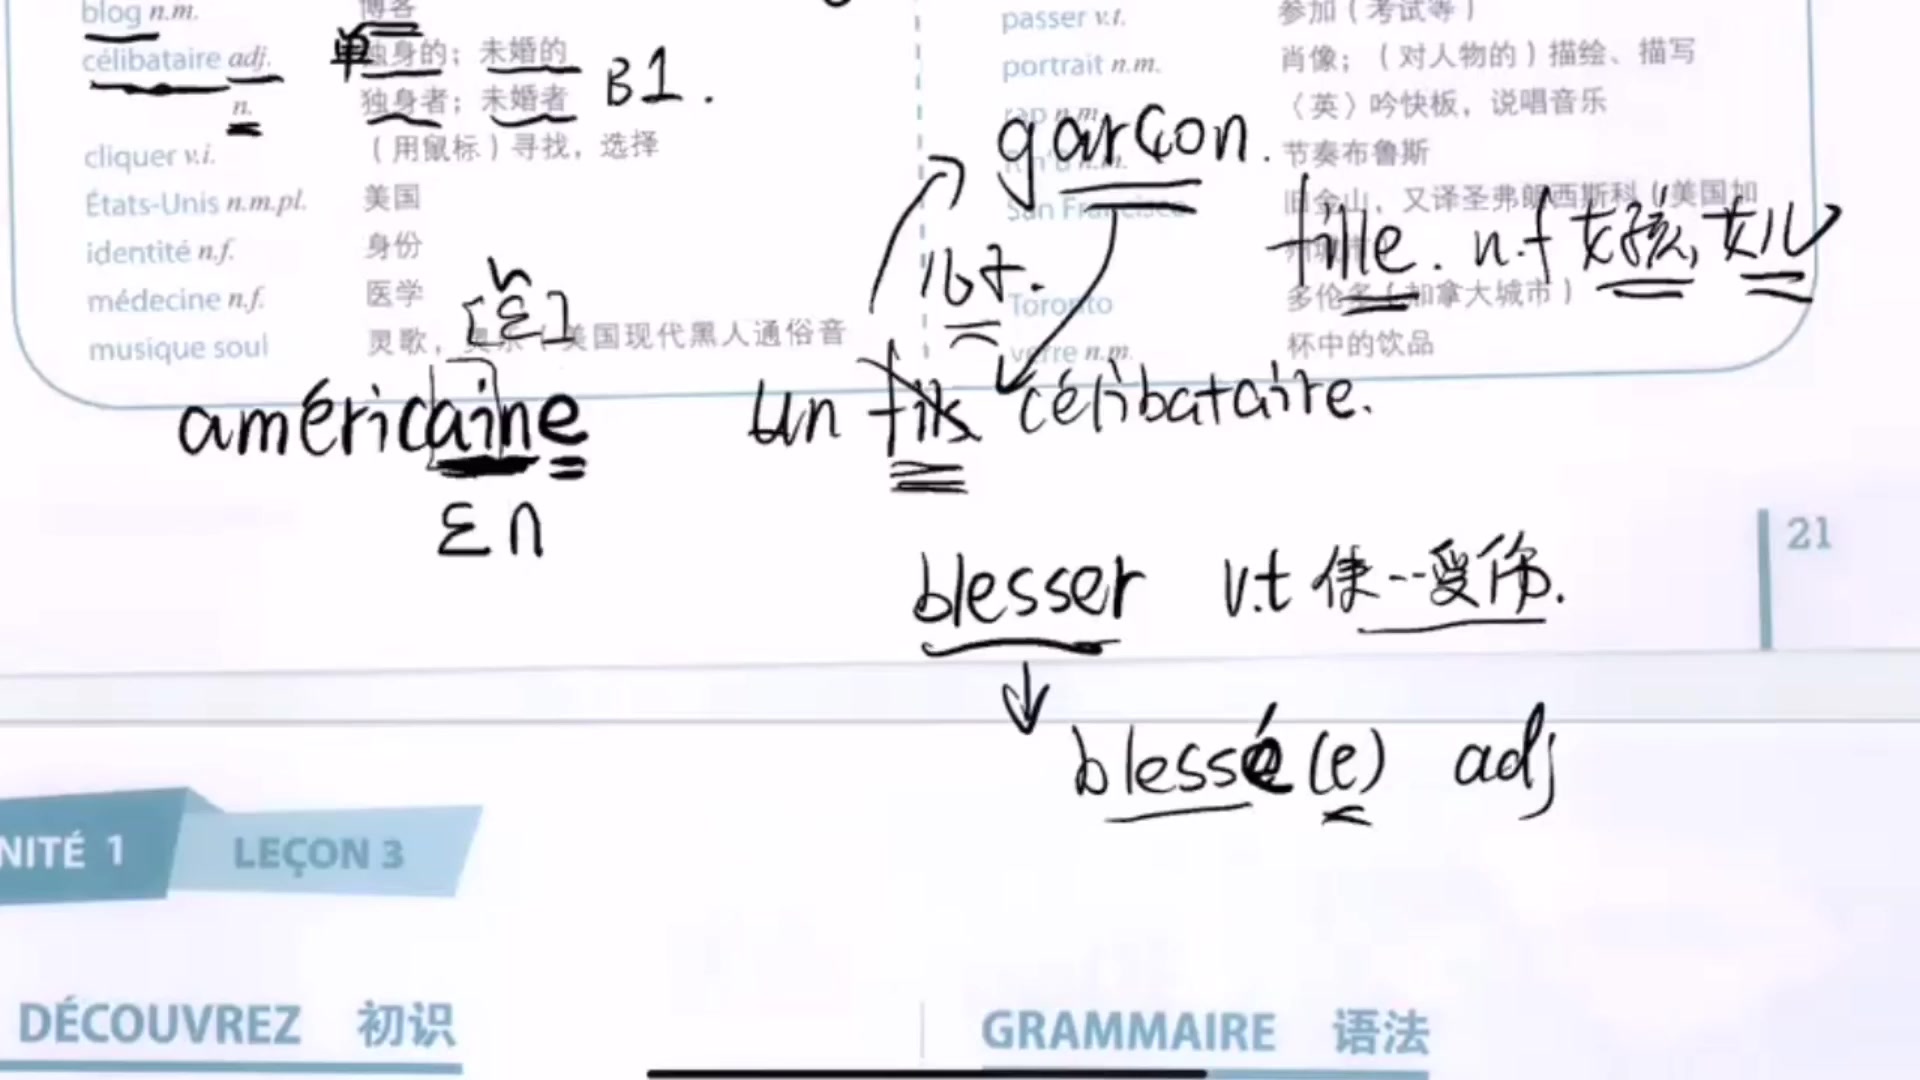 blog n.m. 博客
célibataire adj. 单 独身的；未婚的
n. 独身者；未婚者 B1.
cliquer v.i. （用鼠标）寻找，选择
États-Unis n.m.pl. 美国
identité n.f. 身份
médecine n.f. 医学
musique soul 灵歌，美国现代黑人通俗音
passer v.t. 参加（考试等）
portrait n.m. 肖像；（对人物的）描绘、描写
rap n.m. 〈英〉吟快板，说唱音乐
n.m. 节奏布鲁斯
San Francisco 旧金山，又译圣弗朗西斯科（美国加
州城市
Toronto 多伦多（加拿大城市）
verre n.m. 杯中的饮品
garçon.
fille. n.f 女孩, 女儿
儿子.
[ɛ]
n
américaine
un fils célibataire.
ɛn
blesser v.t 使--受伤.
21
blessé(e) adj
NITÉ 1 LEÇON 3
DÉCOUVREZ 初识
GRAMMAIRE 语法